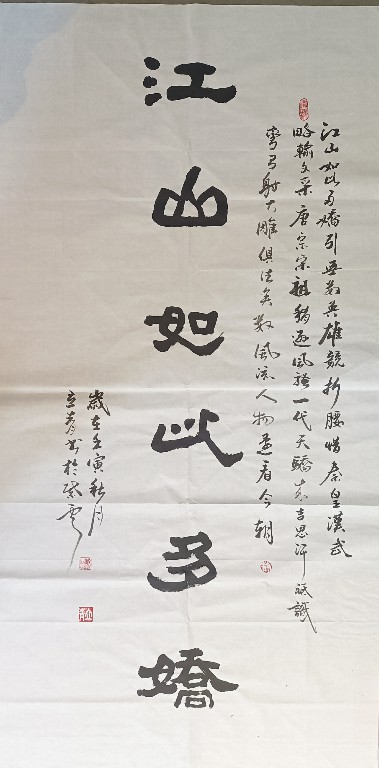 江山如此多嬌
江山如此多嬌引無數英雄競折腰惜秦皇漢武
略輸文采唐宗宋祖稍遜風騷一代天驕成吉思汗祇識
彎弓射大雕俱往矣數風流人物還看今朝
歲在壬寅秋月
書於